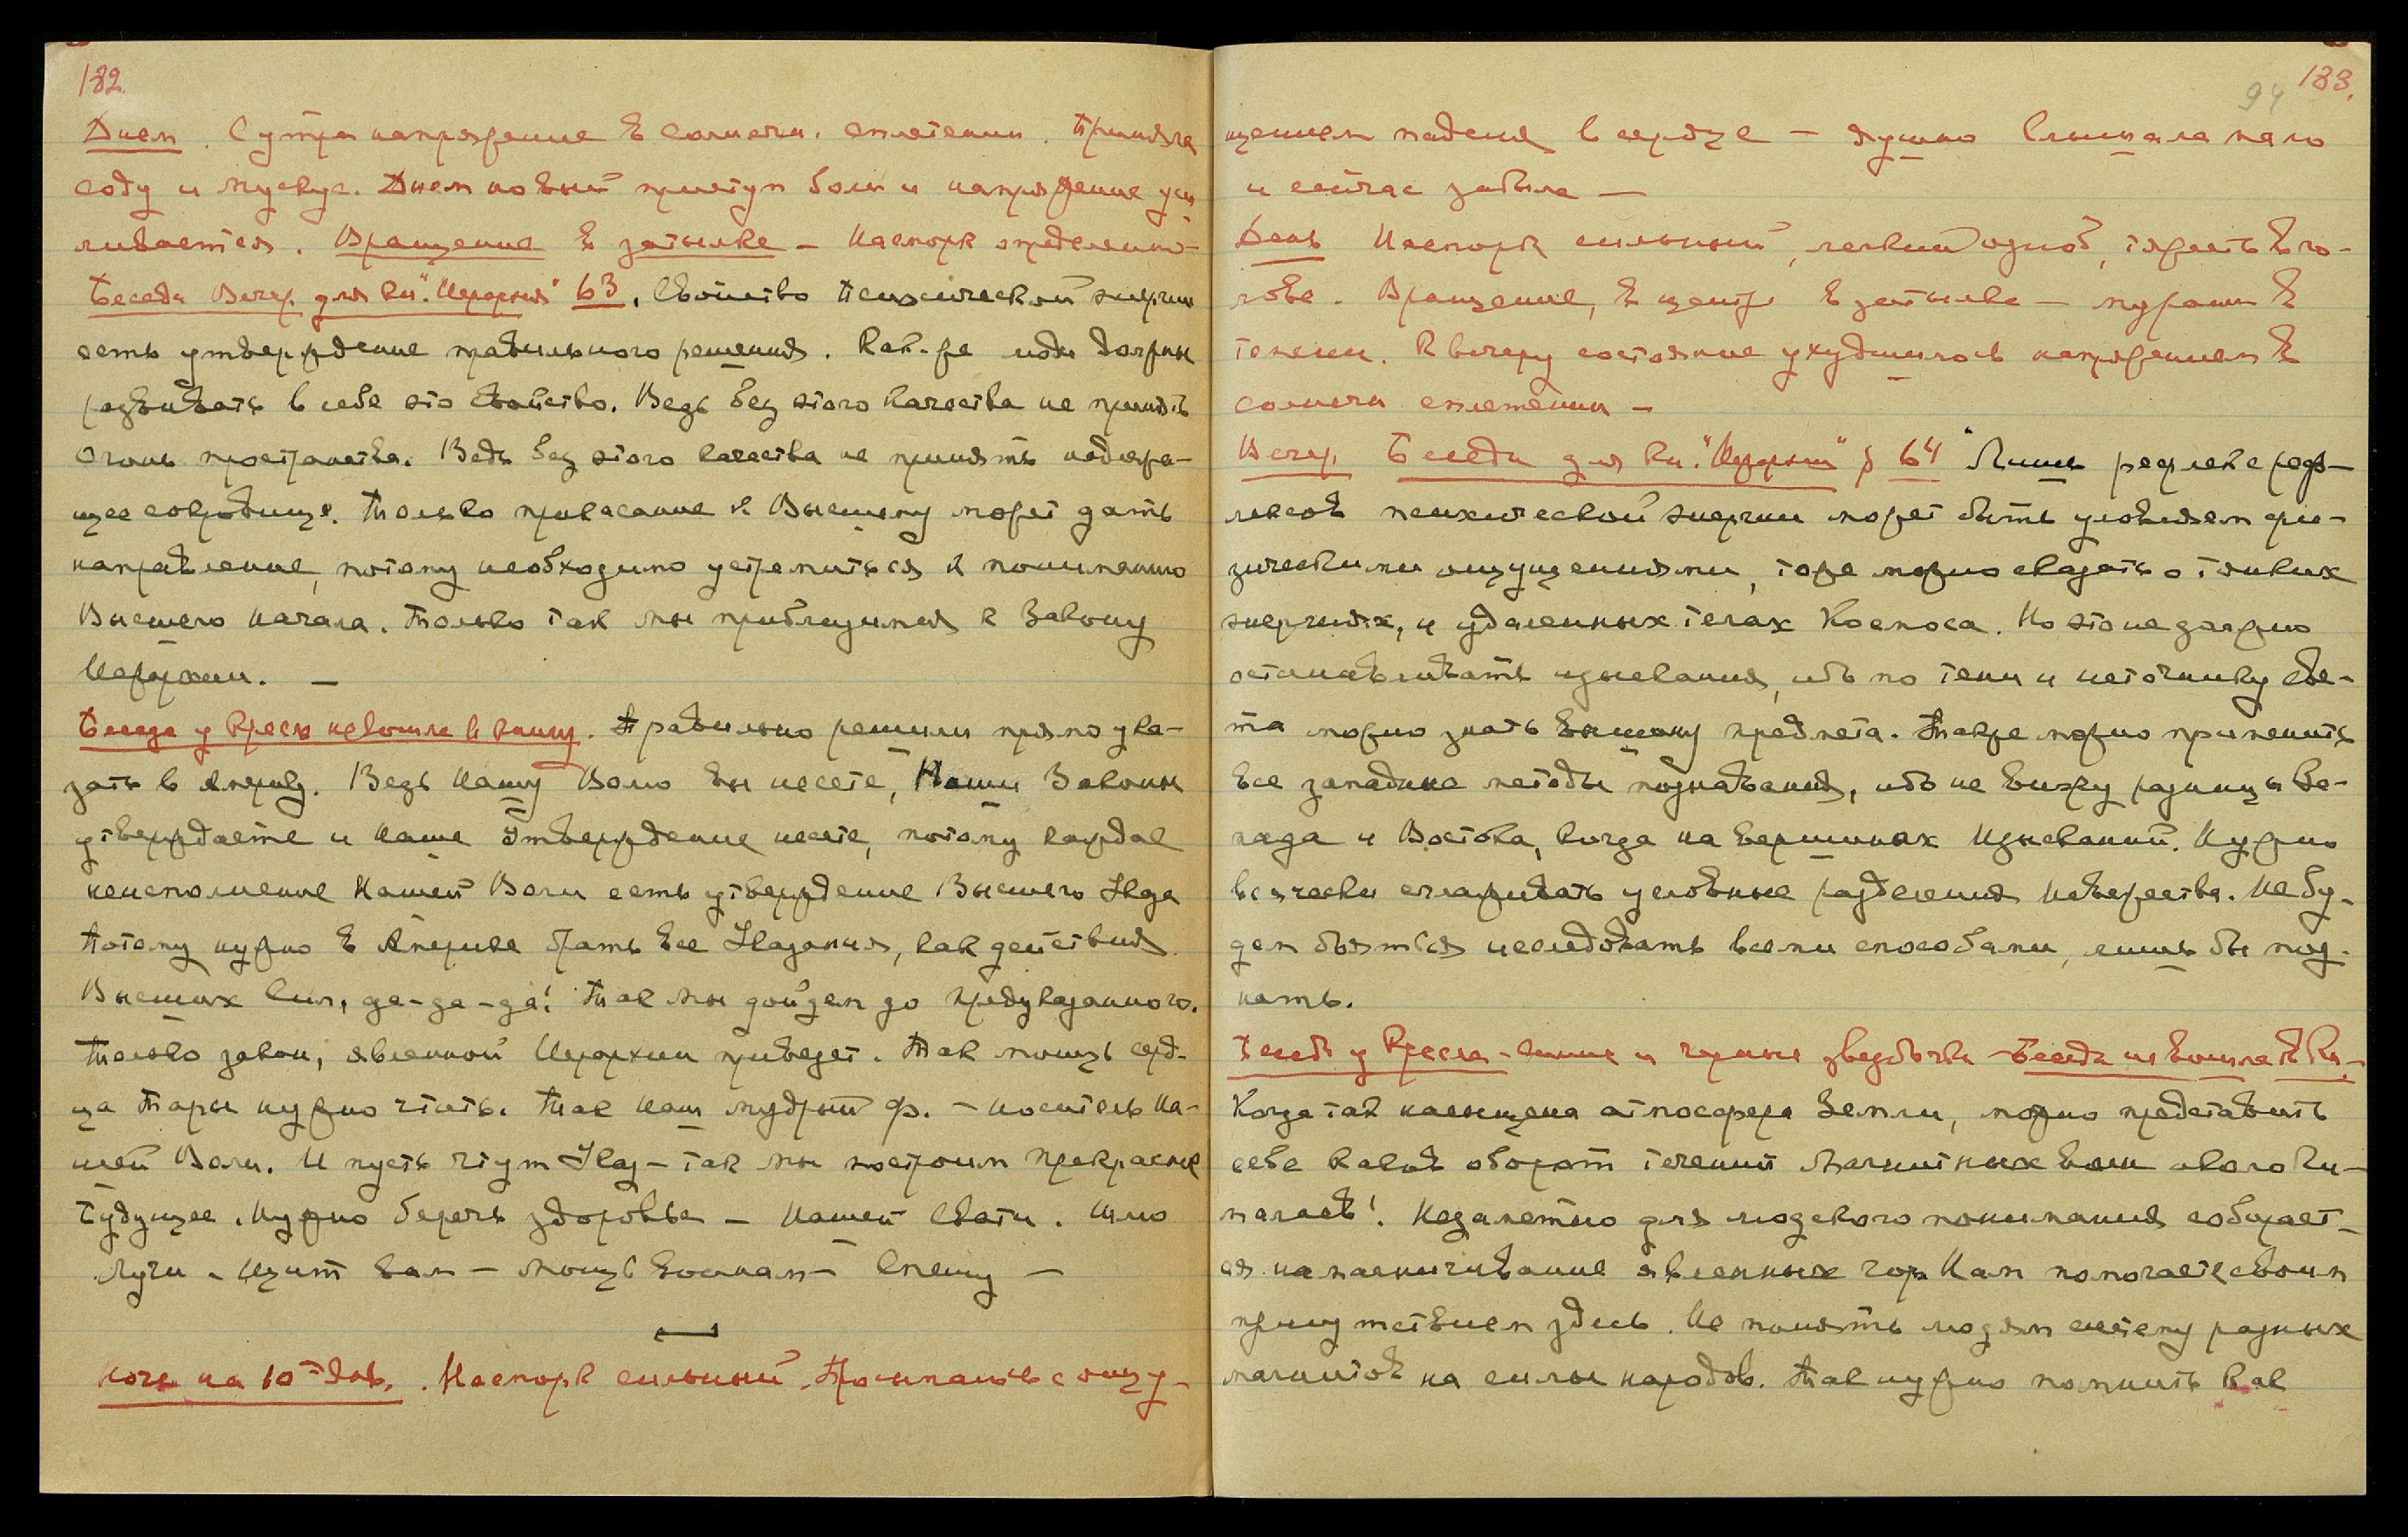 182.
Днем. С утра напряжение в солнечн. сплетении. Приняла
соду и мускус. Днем новый приступ боли и напряжение уси
ливается. Вращение в затылке – Насморк определенно-
Беседа Вечер. для кн. "Иерархия" 63. Свойство психической энергии
есть утверждение правильного решения. Как-же люди должны
развивать в себе это свойство. Ведь без этого качества не принять
Огонь пространства. Ведь без этого качества не принять надлежа-
щее сокровище. Только прикасание к Высшему может дать
направление, потому необходимо устремиться к пониманию
Высшего Начала. Только так мы приблизимся к Закону
Иерархии. –
Беседа у Кресла не вошла в книгу. Правильно решили прямо ука-
зать в Америку. Ведь Нашу Волю вы несете, Наши Законы
утверждаете и Наше Утверждение несете, потому каждое
неисполнение Нашей Воли есть утверждение Высшего
Потому нужно в Америке брать все Указания, как действия
Высших Сил, да-да-да! Так мы дойдем до предуказанного.
Только закон, явленной Иерархии приведет. Так мощь серд-
ца Тары нужно чтить. Так Наш мудрый Ф. – носитель На-
шей Воли. И пусть чтут Указ – так мы построим прекрасное
Будущее. Нужно беречь здоровье – Нашей Свати. Шлю
Лучи – Щит вам – мощь воинам – Спешу –
Ночь на 10-ое янв. Насморк сильный. Просыпалась с ощу-
94 183.
щением падения в сердце – душно Слышала мало
и сейчас забыла –
День Насморк сильный, легкий озноб, тяжесть в го-
лове. Вращение, в центре в затылке – мурашки в
темени. К вечеру состояние ухудшилось напряжением в
солнечн сплетении –
Вечер. Беседа для кн. "Иерархия" § 64 "Лишь рефлекс реф-
лексов психической энергии может быть уловляем фи-
зическими ощущениями, тоже можно сказать о тонких
энергиях, и удаленных телах Космоса. Но это не должно
останавливать изыскания, ибо по тени и источнику све-
та можно знать вышину предмета. Также можно применить
все западные методы познавания, ибо не вижу разницы За-
пада и Востока, когда на вершинах Изысканий. Нужно
всячески сглаживать условные разделения Невежества. Не бу-
дем бояться исследовать всеми способами, лишь бы поз-
нать.
Беседа у Кресла – синие и черные звездочки – Беседа не вошла в Кн.–
Когда так насыщена атмосфера Земли, можно представить
себе каков оборот течений Магнитных волн около Ги-
малаев! Незаметно для людского понимания собирает-
ся намагничивание явленных гор Нам помогаете своим
присутствием здесь. Не понять людям систему разных
магнитов на силы народов. Так нужно помнить как